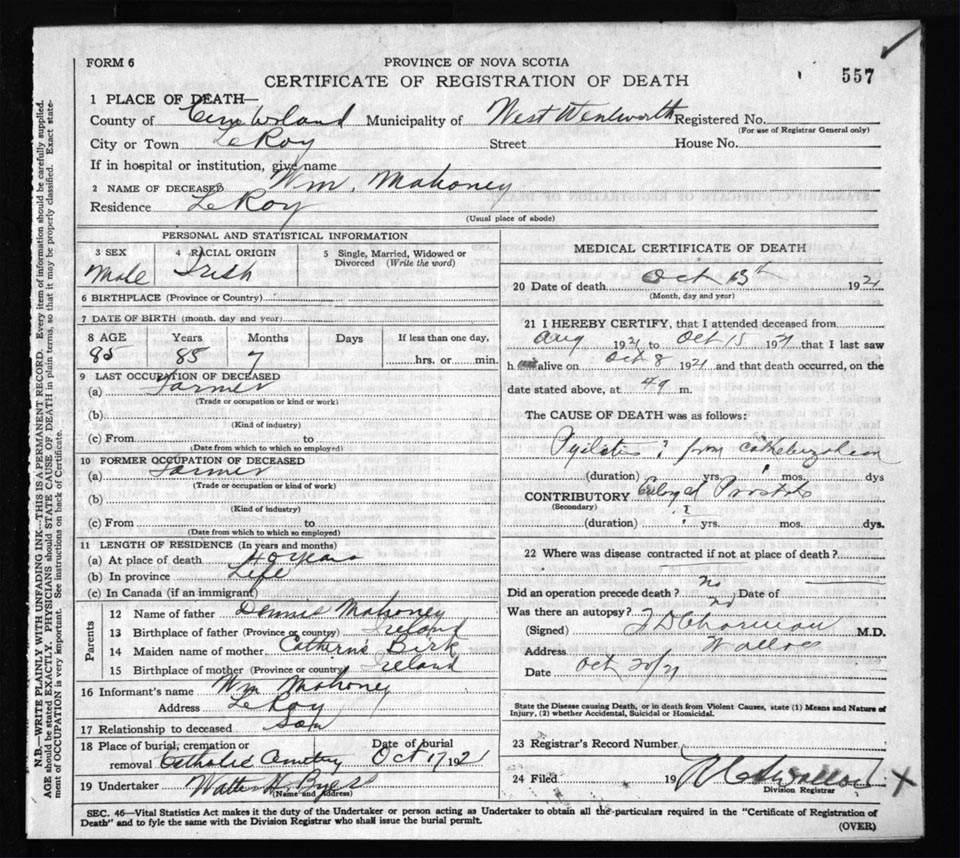 FORM 6
PROVINCE OF NOVA SCOTIA
CERTIFICATE OF REGISTRATION OF DEATH
557
1 PLACE OF DEATH—
County of Cumberland Municipality of West Wentworth Registered No.
(For use of Registrar General only)
City or Town LeRoy Street House No.
If in hospital or institution, give name
2 NAME OF DECEASED Wm. Mahoney
Residence LeRoy
(Usual place of abode)
PERSONAL AND STATISTICAL INFORMATION
3 SEX Male
4 RACIAL ORIGIN Irish
5 Single, Married, Widowed or Divorced (Write the word)
6 BIRTHPLACE (Province or Country)
7 DATE OF BIRTH (month, day and year)
8 AGE Years Months Days If less than one day,
85 85 7 hrs. or min.
9 LAST OCCUPATION OF DECEASED
(a) Farmer
(Trade or occupation or kind or work)
(b)
(Kind of industry)
(c) From to
(Date from which to which so employed)
10 FORMER OCCUPATION OF DECEASED
(a) Farmer
(Trade or occupation or kind of work)
(b)
(Kind of industry)
(c) From to
(Date from which to which so employed)
11 LENGTH OF RESIDENCE (In years and months)
(a) At place of death 40 years
(b) In province Life
(c) In Canada (if an immigrant)
Parents
12 Name of father Dennis Mahoney
13 Birthplace of father (Province or country) Ireland
14 Maiden name of mother Catherns Birk
15 Birthplace of mother (Province or country) Ireland
16 Informant's name Wm Mahoney
Address LeRoy
17 Relationship to deceased Son
18 Place of burial, cremation or removal Catholic Cemetery
Date of burial Oct 17 192
19 Undertaker Walter H. Byers
(Name and Address)
MEDICAL CERTIFICATE OF DEATH
20 Date of death Oct 13th 1921
(Month, day and year)
21 I HEREBY CERTIFY, that I attended deceased from
Aug 1921 to Oct 1921 that I last saw
h alive on Oct 8 1921 and that death occurred, on the
date stated above, at m.
The CAUSE OF DEATH was as follows:
? from
(duration) yrs. mos. dys
CONTRIBUTORY
(Secondary)
(duration) ? yrs. mos. dys.
22 Where was disease contracted if not at place of death?
Did an operation precede death? no Date of
Was there an autopsy? no
(Signed) M.D.
Address Wallace
Date Oct 20/21
State the Disease causing Death, or in death from Violent Causes, state (1) Means and Nature of
Injury, (2) whether Accidental, Suicidal or Homicidal.
23 Registrar's Record Number
24 Filed 19
Division Registrar
X
SEC. 46—Vital Statistics Act makes it the duty of the Undertaker or person acting as Undertaker to obtain all the particulars required in the "Certificate of Registration of
Death" and to fyle the same with the Division Registrar who shall issue the burial permit.
(OVER)
N.B.—WRITE PLAINLY WITH UNFADING INK—THIS IS A PERMANENT RECORD. Every item of information should be carefully supplied.
AGE should be stated EXACTLY. PHYSICIANS should STATE CAUSE OF DEATH in plain terms, so that it may be properly classified. Exact state-
ment of OCCUPATION is very important. See instructions on back of Certificate.